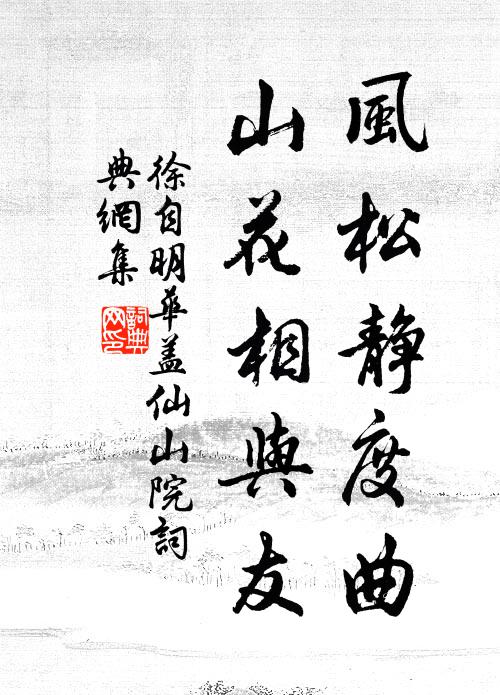 風松靜度曲
山花相與友
徐自明華盖仙山院詞
典網集
詞典
网印